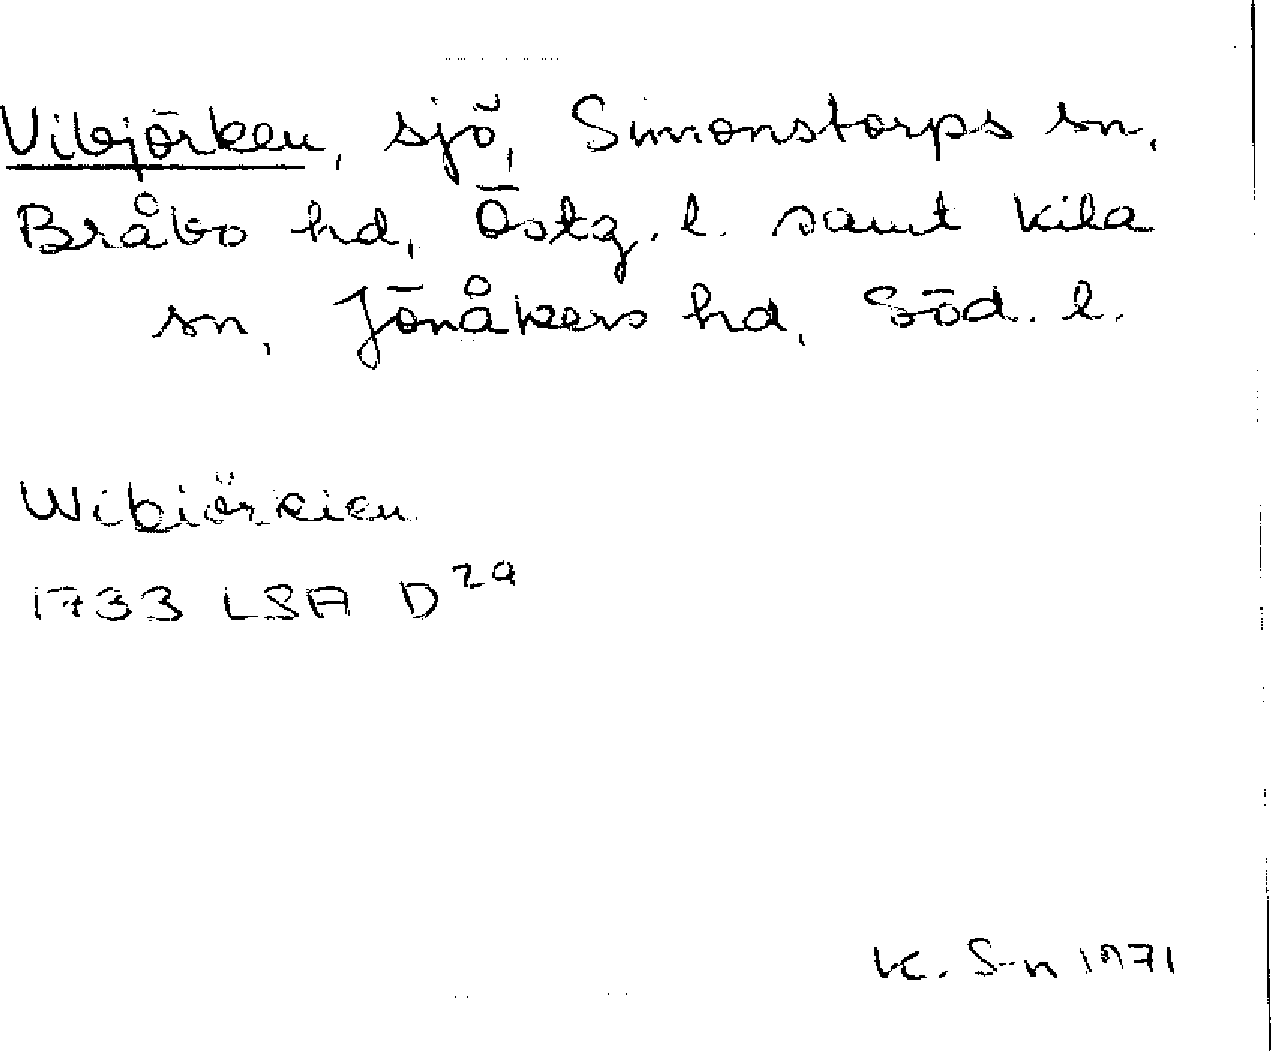 Vibjörken, sjö, Simonstorps sn,
Bråbo hd, Östg. l. samt Kila
sn, Jönåkers hd, Söd. l.
Wibiörkien
1733 LSA D 29
K. S-n 1971